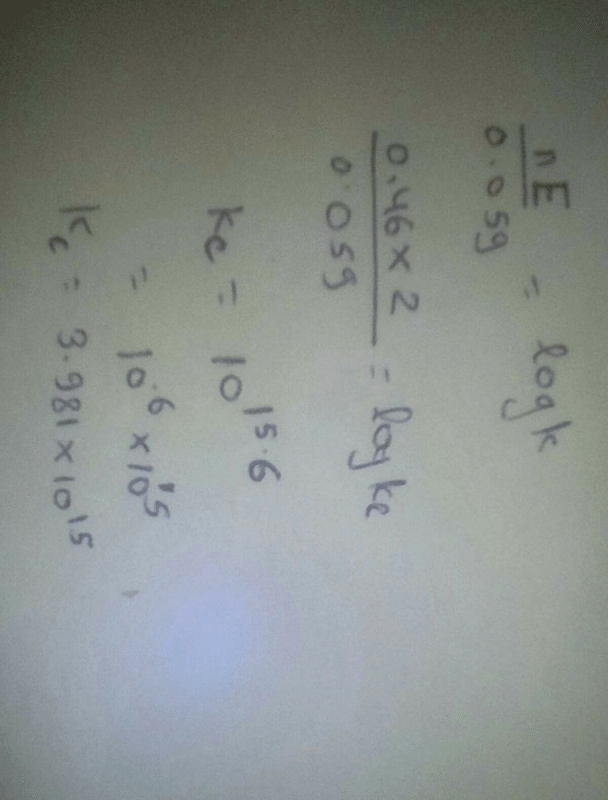 nE/0.059 = log k
0.46 x 2/0.059 = log kc
Kc = 10^15.6
= 10^.6 x 10^15
Kc = 3.981 x 10^15